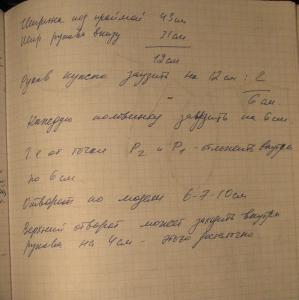 Ширина под проймой 43 см
Шир рукава внизу 31 см
12 см
Рукав нужно заузить на 12 см : 2
6 см.
Каждую половинку заузить на 6 см
Т.е от точки P2 и P1 - отложить внутрь
по 6 см.
Отворот по модели 6-7-10 см
Верхний отворот может заходить внутрь
рукава на 4 см - этого достаточно.